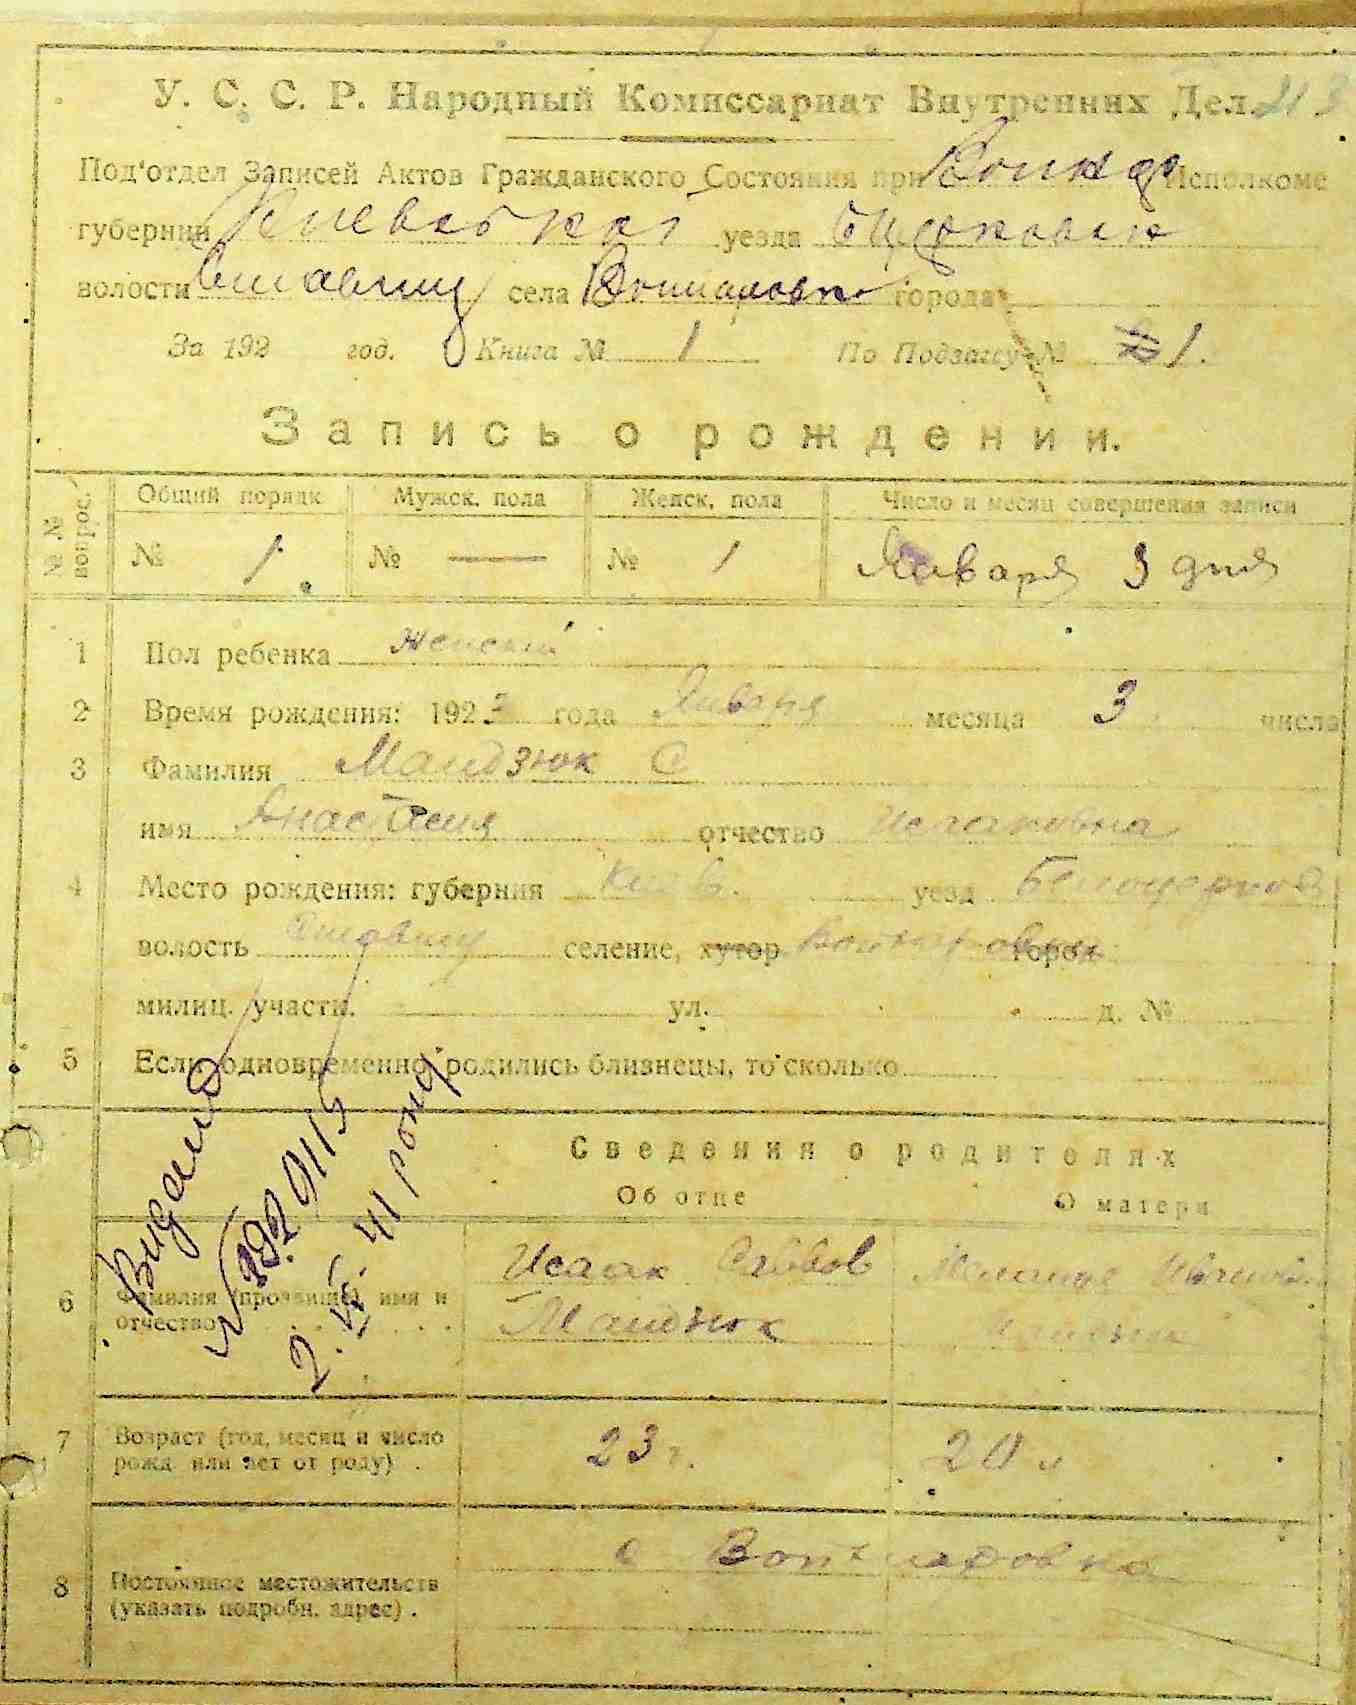 У. С. С. Р. Народный Комиссариат Внутренних Дел. 213
Под'отдел Записей Актов Гражданского Состояния при Исполкоме
губернии Киевской уезда Бцерковск
волости села города
За 192 год. Книга № 1 По Подзагсу № 1.
Запись о рождении.
№№ вопрос.
Общий порядк Мужск. пола Женск. пола Число и месяц совершения записи
№ 1. № — № 1 Января 3 дня
1 Пол ребенка женский
2 Время рождения: 1923 года Января месяца 3 числа
3 Фамилия Мандзюк С
имя Анастасия отчество Исааковна
4 Место рождения: губерния Киев. уезд Белоцерков
волость селение, хутор город
милиц. участк. ул. д. №
5 Если одновременно родились близнецы, то сколько
Сведения о родителях
Об отце О матери
6 Фамилия (прозвище) имя и
отчество
Исаак Саввов
Мандзюк
7 Возраст (год, месяц и число
рожд или лет от роду) .
23 г. 20 л
8 Постоянное местожительств
(указать подробн. адрес) .
с
Видано
2. VI. 41